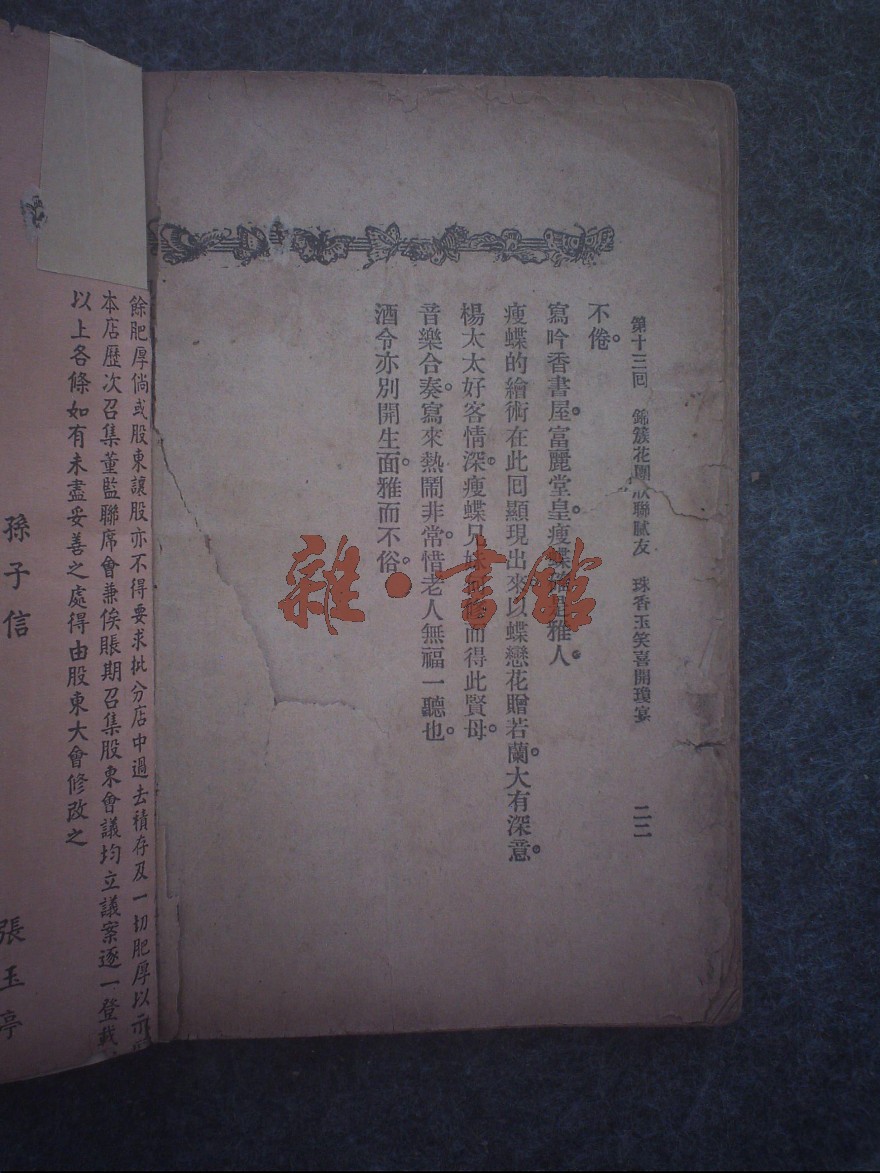 第十三回 錦簇花團 聯膩友 珠香玉笑喜開瓊宴 二二
不倦。
寫吟香書屋。富麗堂皇。瘦蝶 雅人。
瘦蝶的繪術在此回顯現出來。以蝶戀花贈若蘭。大有深意。
楊太太好客情深。瘦蝶兄妹何 而得此賢母。
音樂合奏。寫來熱鬧非常。惜老人無福一聽也。
酒令亦別開生面。雅而不俗。
餘肥厚倘或股東讓股亦不得要求批分店中過去積存及一切肥厚以示
本店歷次召集董監聯席會兼俟賬期召集股東會議均立議案逐一登載
以上各條如有未盡妥善之處得由股東大會修改之
孫子信
張玉亭
雜·書館